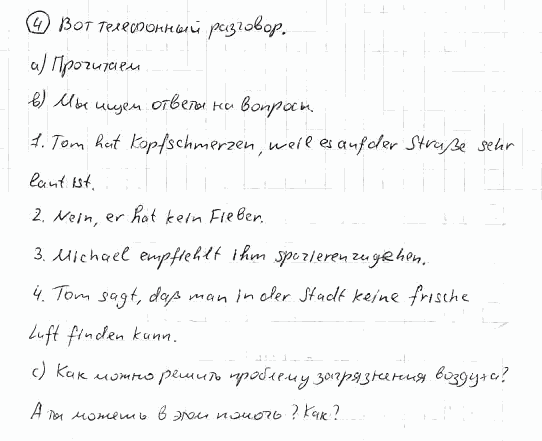 ④ Вот телефонный разговор.
а) Прочитаем
b) Мы ищем ответы на вопросы.
1. Tom hat Kopfschmerzen, weil es auf der Straße sehr
laut ist.
2. Nein, er hat kein Fieber.
3. Michael empfiehlt ihm spazierenzugehen.
4. Tom sagt, daß man in der Stadt keine frische
Luft finden kann.
c) Как можно решить проблему загрязнения воздуха?
А ты можешь в этом помочь? Как?